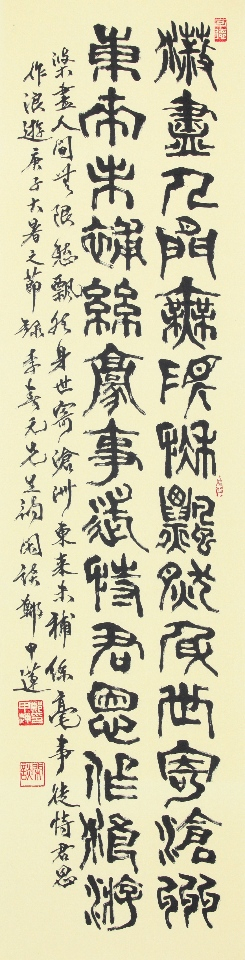 滌盡人間無限愁飄然身世寄滄洲
東來未補絲毫事徒恃君恩作浪游
滌盡人間無限愁飄然身世寄滄洲東來未補絲毫事徒恃君恩
作浪遊庚子大暑之節錄李春元先生 閑談鄭